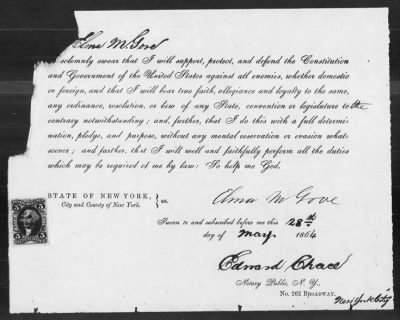 Elma M. Gove
solemnly swear that I will support, protect, and defend the Constitution
and Government of the United States against all enemies, whether domestic
or foreign, and that I will bear true faith, allegiance and loyalty to the same,
any ordinance, resolution, or law of any State, convention or legislature to the
contrary notwithstanding; and, further, that I do this with a full determi-
nation, pledge, and purpose, without any mental reservation or evasion what-
soever; and further, that I will well and faithfully perform all the duties
which may be required of me by law: So help me God.
STATE OF NEW YORK,
City and County of New York.
} ss.
Elma M Gove
Sworn to and subscribed before me this 28th
day of May 1864
Edward Chace
Notary Public, N. Y.,
No. 262 BROADWAY.
New York City